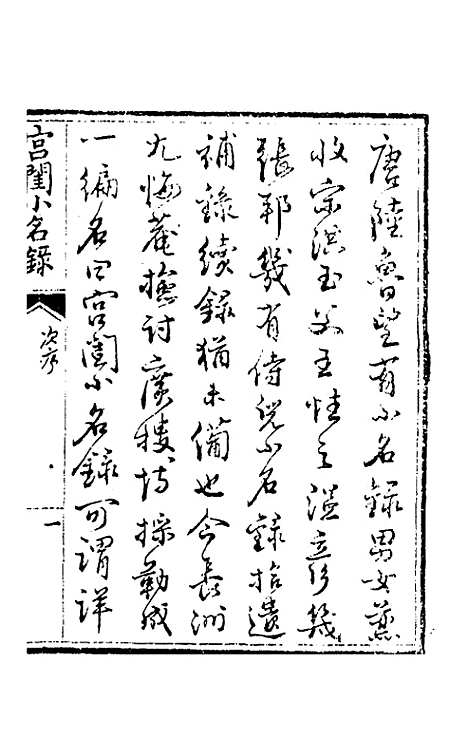 唐陸魯望有小名錄男女兼
收宋洪玉父王性之溫彥幾
張邦幾有侍兒小名錄拾遺
補錄續錄猶未備也今長洲
尤悔菴檢討廣搜博採勒成
一編名曰宮閨小名錄可謂詳
宮閨小名錄
次序
一